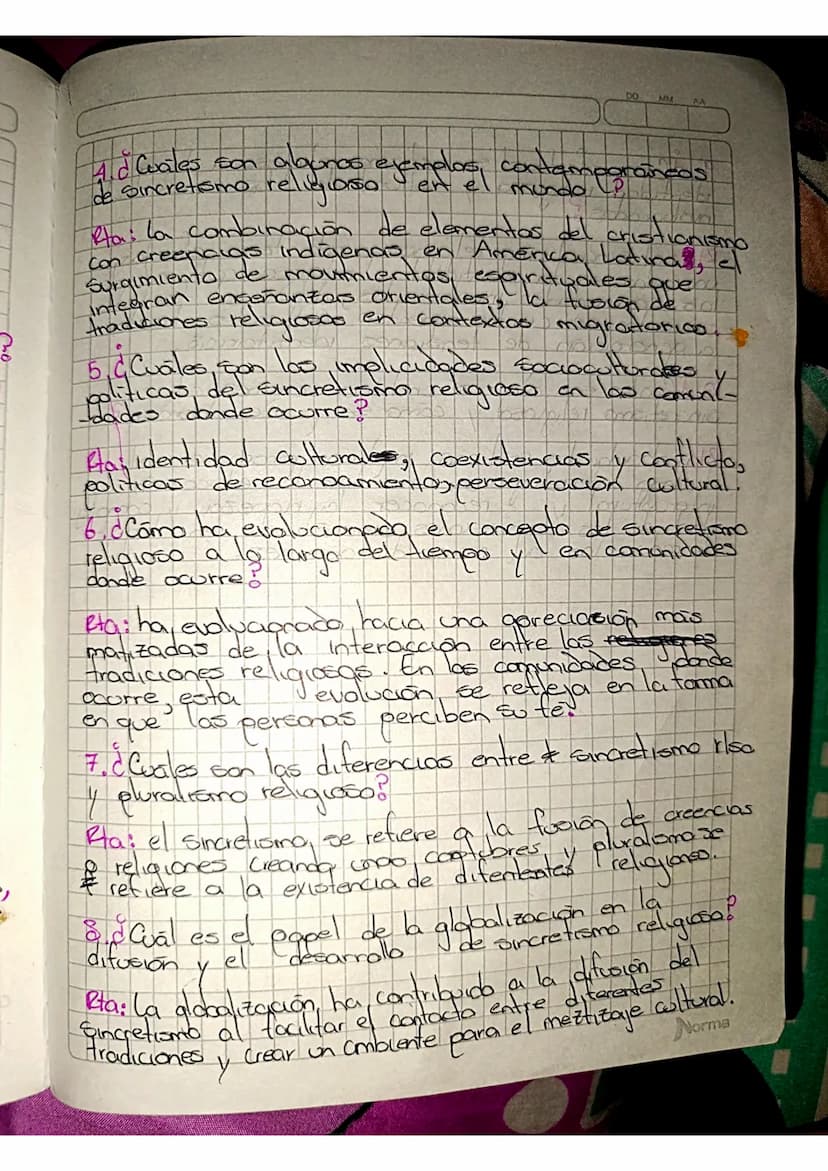 DD MM AA
4. ¿Cuáles son algunos ejemplos contemporáneos
de sincretismo religioso en el mundo?
Rta: la combinación de elementos del cristianismo
con creencias indígenas en América Latina, el
surgimiento de movimientos espirituales que
integran enseñanzas orientales, la fusión de
tradiciones religiosas en contextos migratorios.
5. ¿Cuáles son las implicidades socioculturales y
políticas del sincretismo religioso en las comuni-
-dades donde ocurre?
Rta: identidad cultural, coexistencias y conflictos,
políticas de reconoamiento, perseveración cultural.
6. ¿Cómo ha evolucionado el concepto de sincretismo
religioso a lo largo del tiempo y en comunidades
donde ocurre?
Rta: ha evolucionado hacia una apreciación más
matizadas de la interacción entre las
tradiciones religiosas. En las comunidades donde
ocurre, esta evolución se refleja en la forma
en que las personas perciben su fe.
7. ¿Cuáles son las diferencias entre sincretismo rlso
y pluralismo religioso?
Rta: el sincretismo, se refiere a la fusión de creencias
religiones creando y pluralismo se
refiere a la existencia de religioso.
8. ¿Cuál es el papel de la globalización en la
difusión y el desarrollo de sincretismo religioso?
Rta: La globalización ha contribuido a la difusión del
sincretismo al facilitar el contacto entre diferentes
tradiciones y crear un ambiente para el meztizaje cultural.
Norma